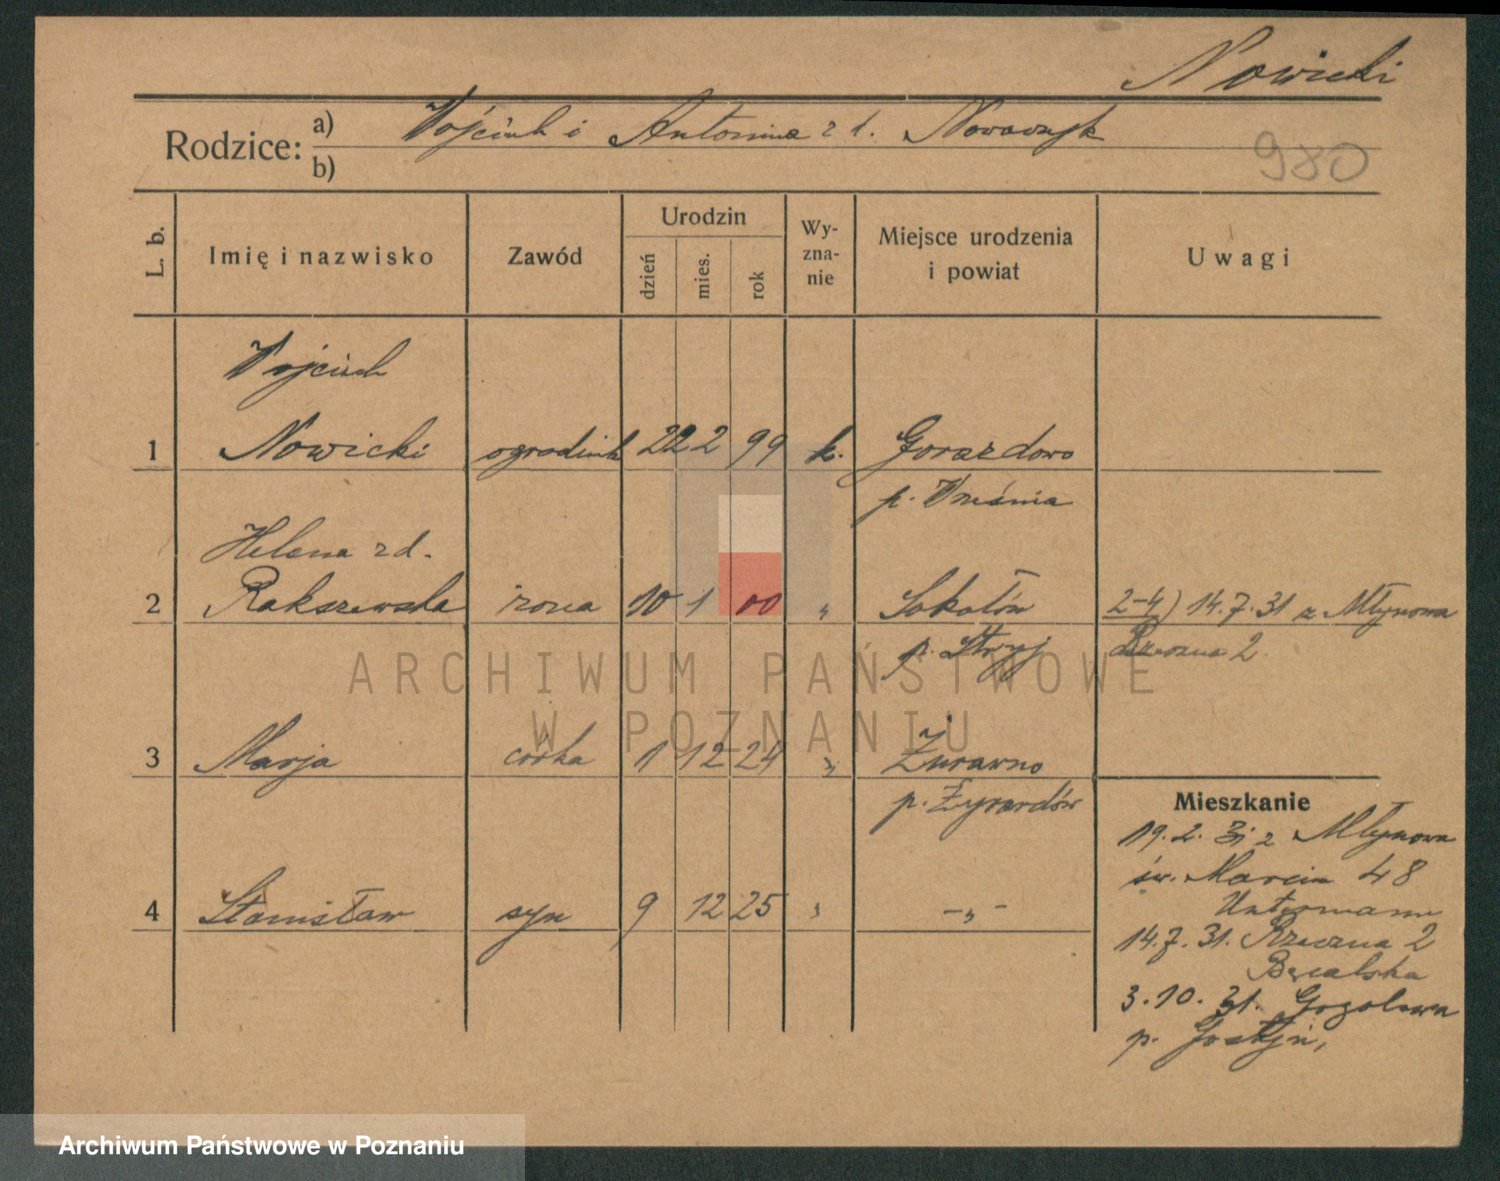 Nowicki
Rodzice: a) Wojciech i Antonina z d. Nowaczyk
b)
980
L. b. Imię i nazwisko Zawód Urodzin dzień mies. rok Wy-zna-nie Miejsce urodzenia i powiat Uwagi
Wojciech
1 Nowicki ogrodnik 22 2 99 k. Gorazdowo
p. Września
Helena z d.
2 Rakszewska żona 10 1 00 " Sokołów 2-4) 14.7.31 z Młynowa
p. Stryj Rzeczna 2
3 Marja córka 1 12 24 " Żurawno
p. Żyrardów
Mieszkanie
19.2.31 z Młynowa
św. Marcin 48
Untermann
4 Stanisław syn 9 12 25 " -"-
14.7.31. Rzeczna 2
3.10.31. Gogolewa
p. Gostyń,
ARCHIWUM PAŃSTWOWE
W POZNANIU
Archiwum Państwowe w Poznaniu